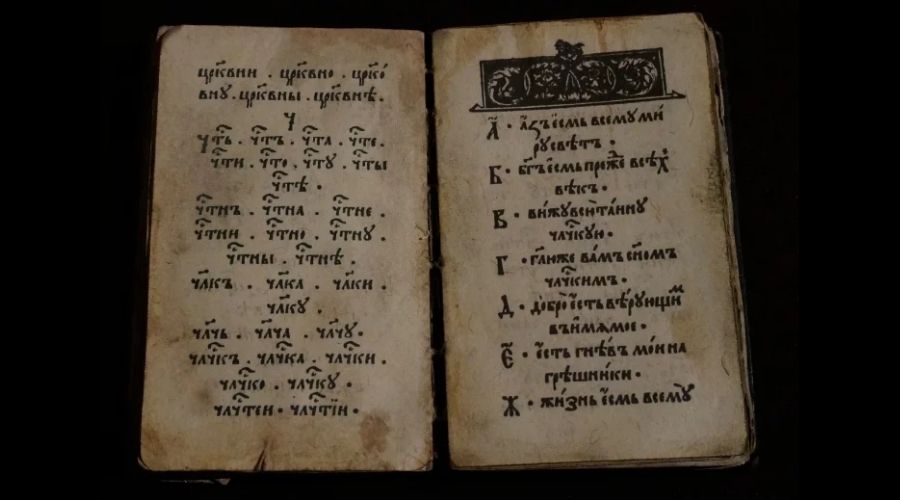 цр҃кви҆и . цр҃кви҆о . цр҃ко́
вну . цр҃квны . цр҃квнѣ .
ч
чт҃ь . чт҃ъ . чт҃а . чт҃е .
чт҃и . чт҃о . чт҃у . чт҃ы
чт҃ѣ .
чт҃нъ . чт҃на . чт҃не .
чт҃ни . чт҃но . чт҃ну .
чт҃ны . чт҃нѣ .
чл҃къ . чл҃ка . чл҃ки .
чл҃ку
чл҃чь . чл҃ча . чл҃чу .
чл҃чкъ . чл҃чка . чл҃чки .
чл҃чко . чл҃чку .
чл҃чтеи . чл҃чтїи .
А · А҆зъ є҆смь всемꙋ ми́
рꙋ свѣтъ .
Б · бг҃ъ є҆смь пре́же всѣ́х
вѣкъ .
В · ви́жꙋ всю̀ та́инꙋ
чл҃чкꙋю .
Г · гл҃ю же ва́мъ сн҃омъ
чл҃чкимъ .
Д · добро̀ є҆сть вѣ́рꙋющим
въ и҆́мѧ моѐ .
Є · є҆сть гнѣ́въ мо́и на
грѣ́шники .
Ж · жи́знь є҆смь всемꙋ̀